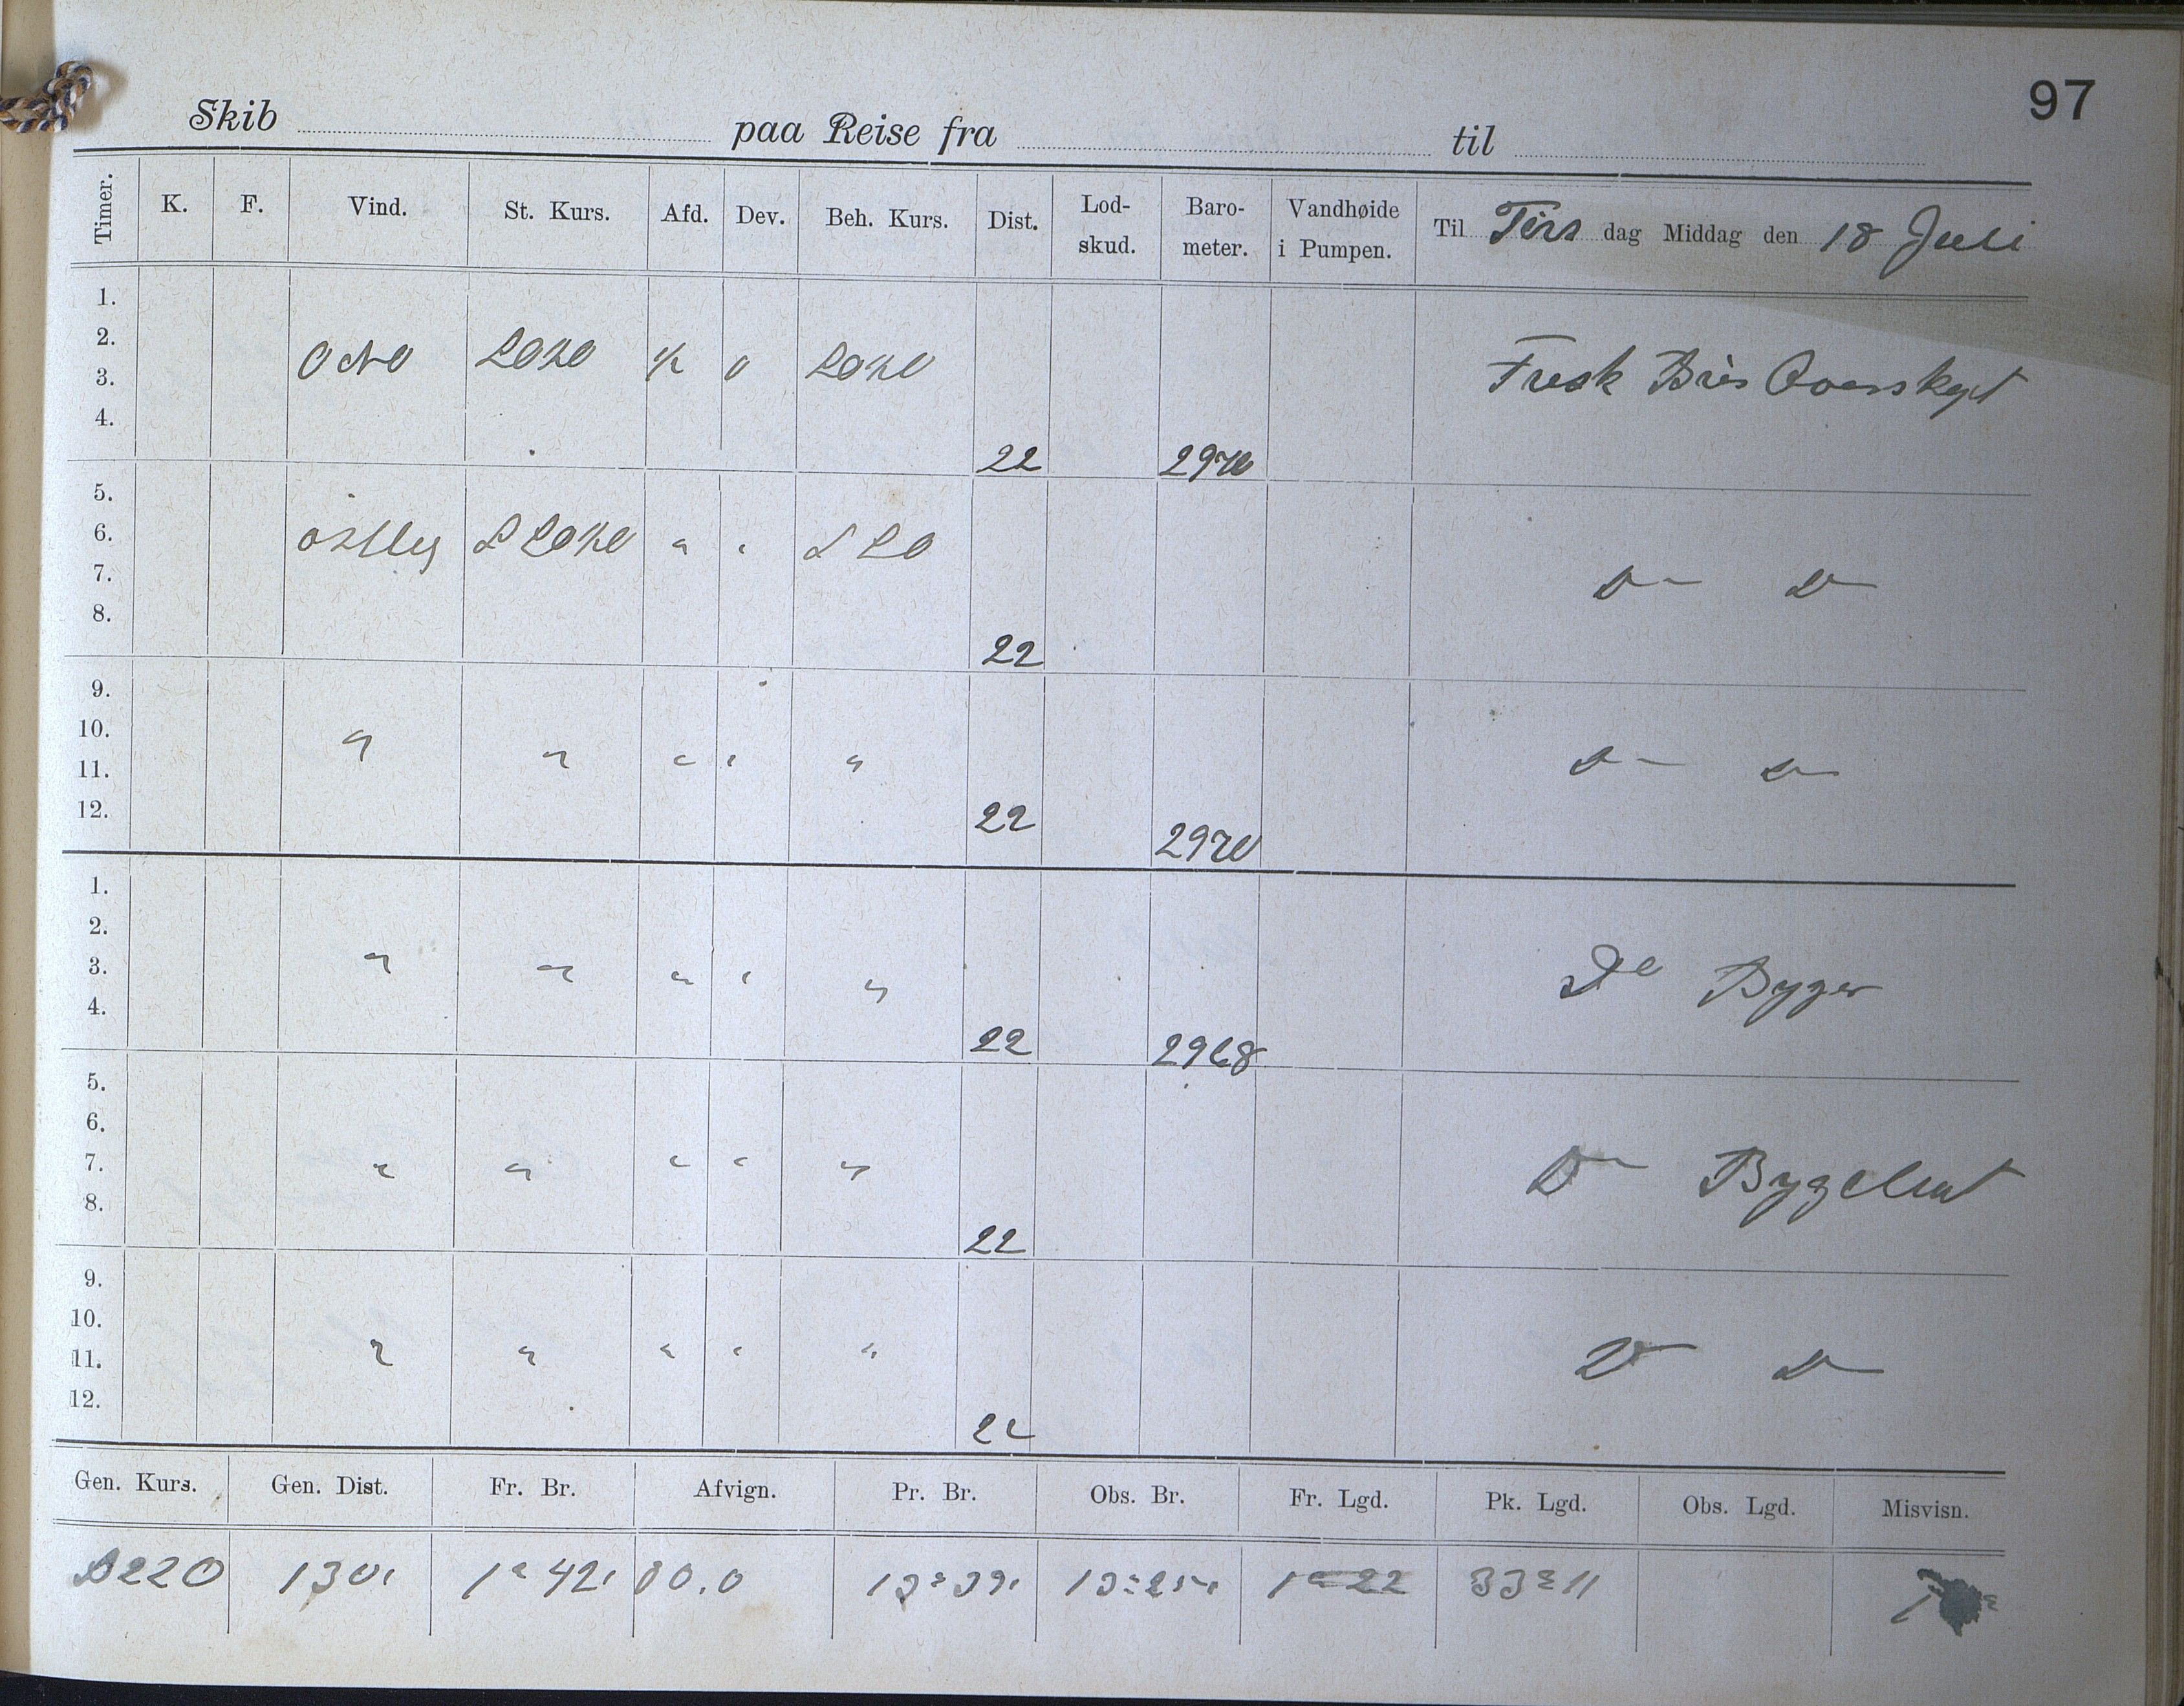 97
Skib paa Reise fra til
Timer. K. F. Vind. St. Kurs. Afd. Dev. Beh. Kurs. Dist. Lod-skud. Baro-meter. Vandhøide i Pumpen. Til Tirs dag Middag den 18 Juli
1.
2.
3. ONO 0 Frisk Bris Overskyt
4. 22 2970
5.
6. østlig " "
7. D— D—
8. 22
9.
10. "
11. " " " " D— D—
12. 22 2970
1.
2.
3. " " " " " Do Byger
4. 22 2968
5.
6.
7. " " " " " D—
8. 22
9.
10.
11. " " " " " D— D—
12. 22
Gen. Kurs. Gen. Dist. Fr. Br. Afvign. Pr. Br. Obs. Br. Fr. Lgd. Pk. Lgd. Obs. Lgd. Misvisn.
130' 1° 42' 00.0 13° 39' 13° 25' 1° 22 33° 11